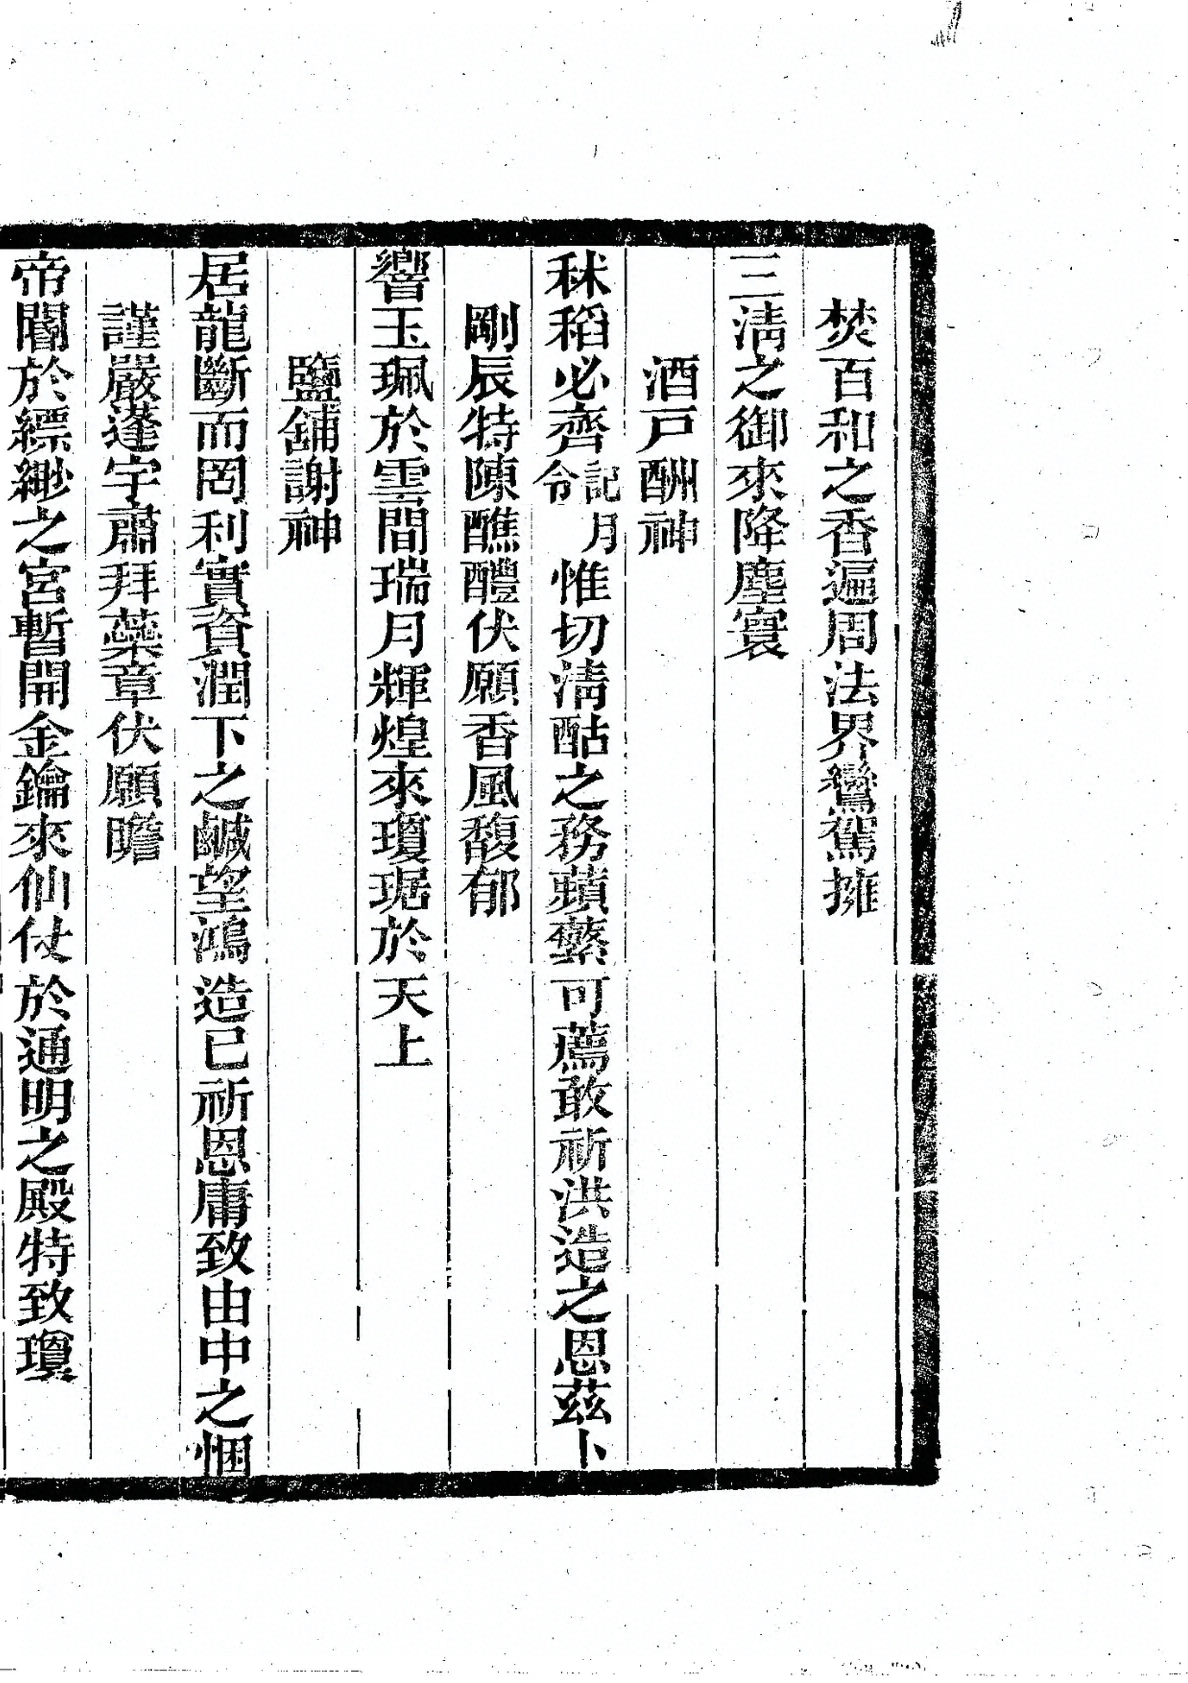 焚百和之香遍周法界鸞駕擁
三淸之御來降塵寰
酒戸酬神
秫稻必齊記月令惟切淸酤之務蘋蘩可薦敢祈洪造之恩茲卜
剛辰特陳醮醴伏願香風馥郁
響玉珮於雲間瑞月輝煌來瓊琚於天上
鹽舖謝神
居龍斷而罔利實資潤下之鹹望鴻造已祈恩庸致由中之悃
謹嚴蓬宇肅拜蘂章伏願瞻
帝閽於縹緲之宮暫開金鑰來仙仗於通明之殿特致瓊